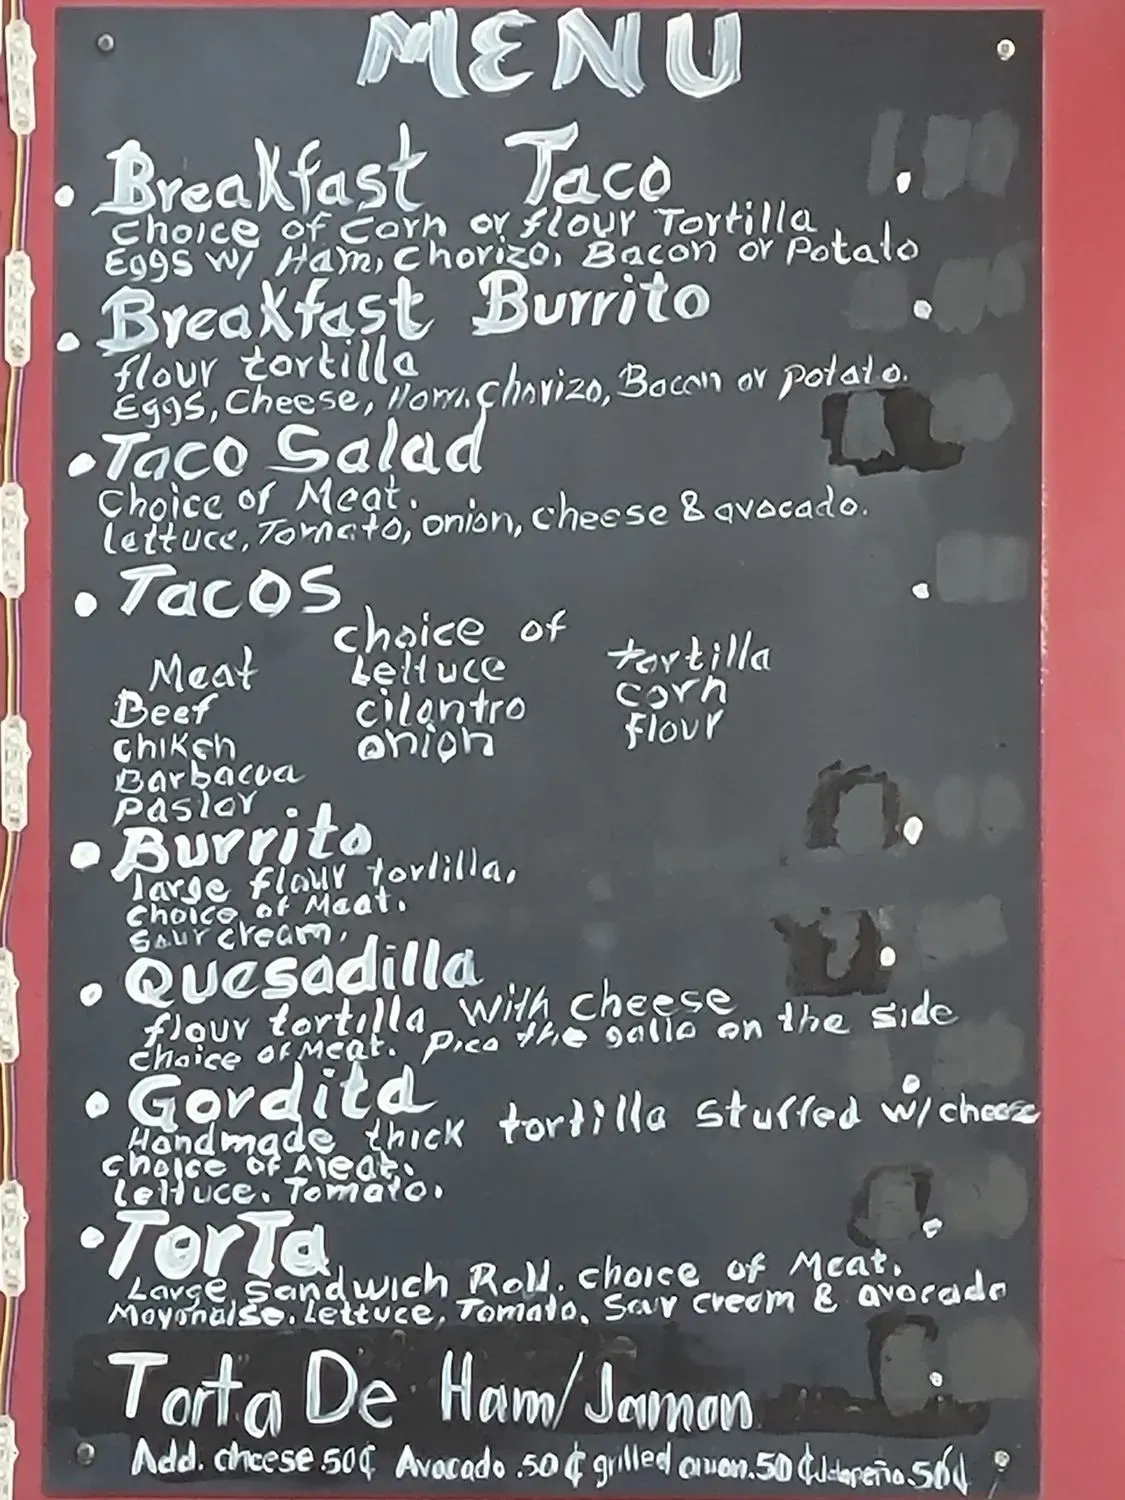 MENU
• Breakfast Taco
Choice of Corn or flour Tortilla
Eggs w/ Ham, Chorizo, Bacon or Potato
• Breakfast Burrito
flour tortilla
Eggs, Cheese, Ham, Chorizo, Bacon or potato.
• Taco Salad
Choice of Meat.
lettuce, Tomato, onion, cheese & avocado.
• Tacos
choice of
Meat Lettuce tortilla
Beef cilantro corn
chiken onion flour
Barbacoa
Pastor
• Burrito
large flour tortilla,
choice of Meat.
sour cream,
• Quesadilla
flour tortilla with cheese
choice of Meat. Pico the gallo on the side
• Gordita
Handmade thick tortilla stuffed w/ cheese
choice of Meat.
Lettuce. Tomato.
• Torta
Large Sandwich Roll. choice of Meat.
Mayonaise. Lettuce, Tomato, Sour cream & avocado
Torta De Ham/Jamon
Add. cheese .50¢ Avocado .50¢ grilled onion .50¢ Jalapeño .50¢